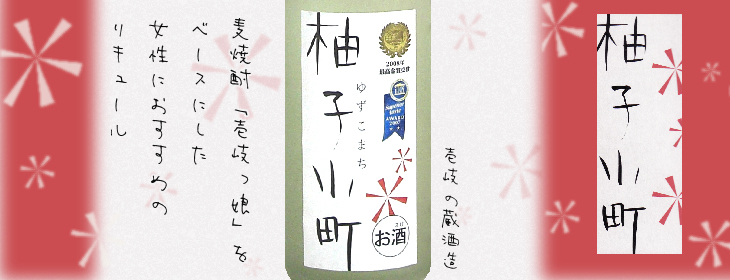 麦焼酎「壱岐っ娘」を
ベースにした
女性におすすめの
リキュール
柚子小町
ゆずこまち
2008年
最高金賞受賞
Superior
Taste
AWARD
2007
お酒
壱岐の蔵酒造
柚子小町